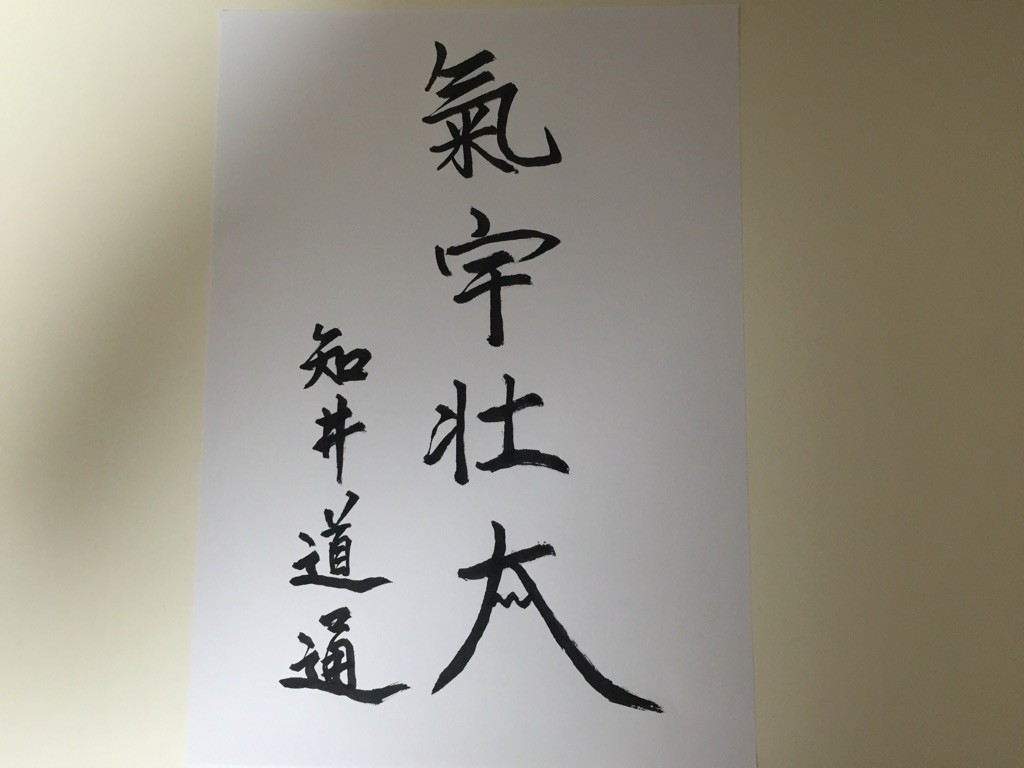 氣宇壮大
知井道通